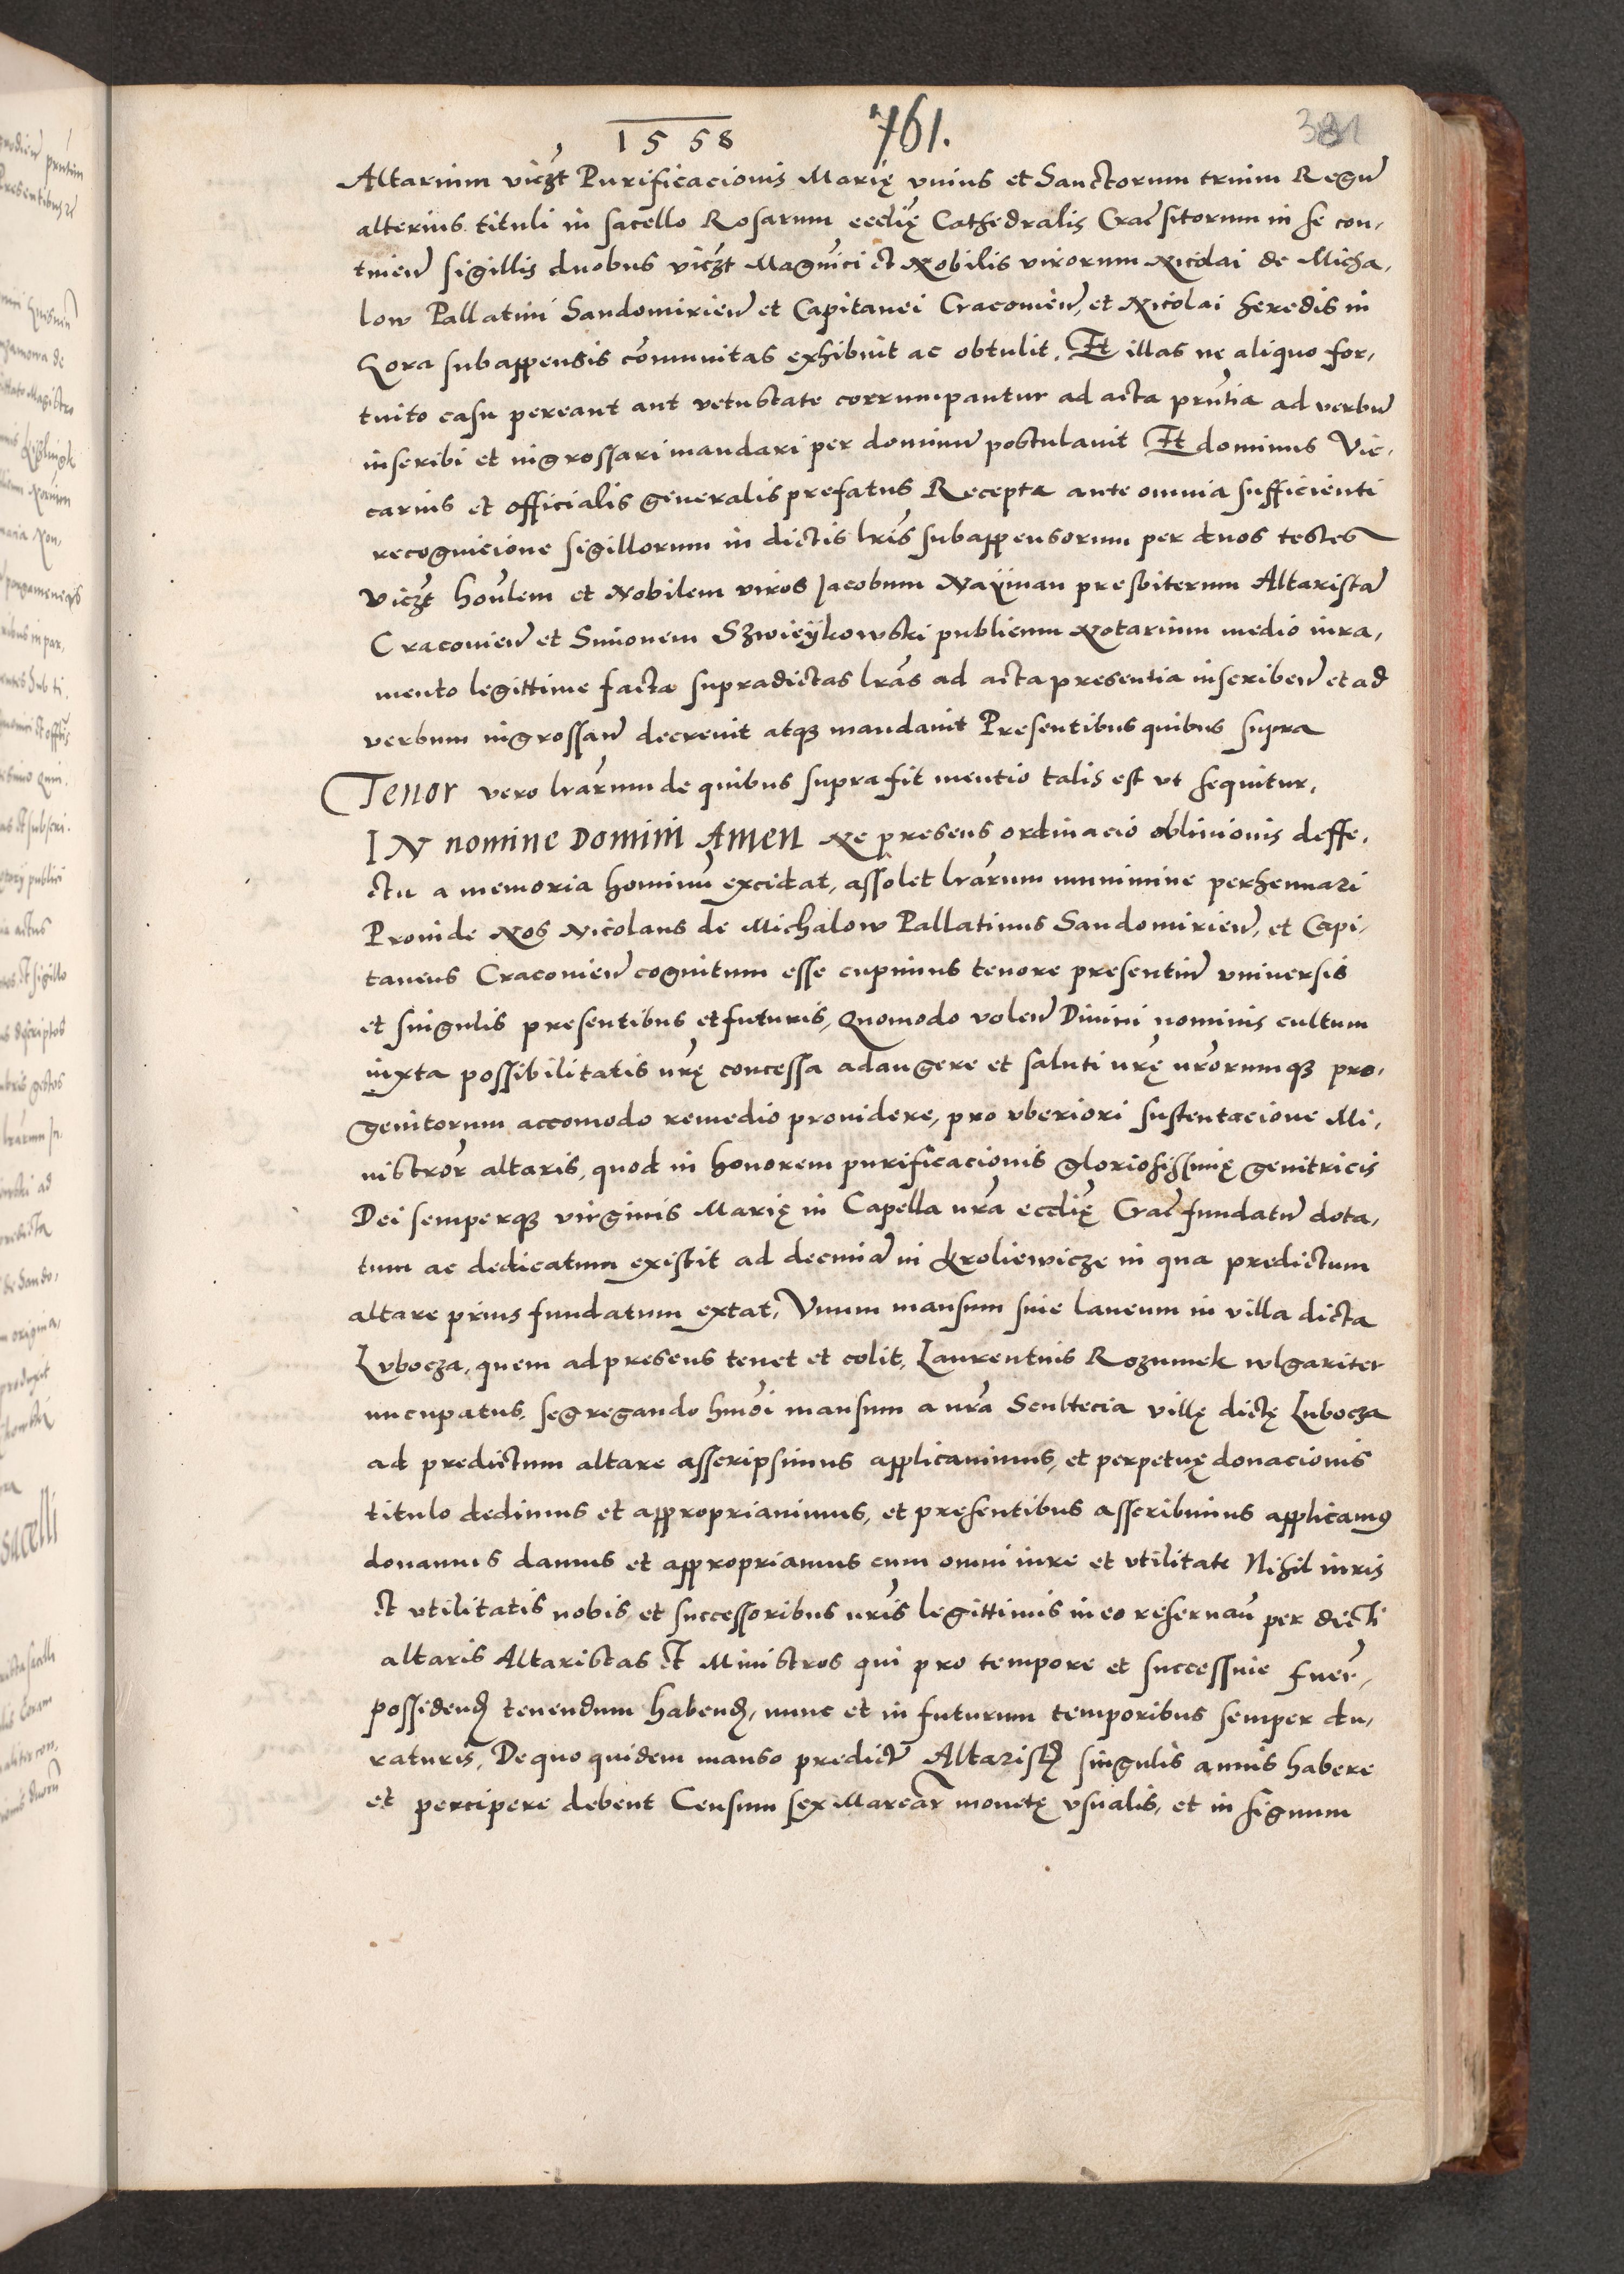 1558 761. 381
Altarium viczt Purificacionis Marię vnius et Sanctorum trium Regū
alterius tituli in sacello Rosarum ecclię Cathedralis Crac̃ sitorum in se con,
tineñ sigillis duobus viczt Magnici et Nobilis virorum Nicolai de Micha,
low Pallatini Sandomirieñ et Capitanei Cracovieñ, et Nicolai heredis in
Gora subappensis com̄munitas exhibuit ac obtulit. Et illas ne aliquo for,
tuito casu pereant aut vetustate corrumpantur ad acta prn̄tia ad verbū
inscribi et ingrossari mandari per dominū postulavit Et dominus Vic,
carius et officialis generalis prefatus Recepta ante omnia sufficienti
recognicione sigillorum in dictis lr̄is subappensorum per duos testes
viczt hon̄lem et Nobilem viros Jacobum Nayman presbiterum Altaristā
Cracovieñ et Simonem Szwieykowski publicum Notarium medio iura,
mento legittime facta supradictas lrās ad acta presentia inscribeñ et ad
verbum ingrossañ decrevit atqꝫ mandavit Presentibus quibus supra
Tenor vero lrārum de quibus supra fit mentio talis est vt sequitur.
IN nomine Domini Amen Ne presens ordinacio oblivionis deffe,
ctu a memoria hominū excidat, assolet lrārum munimine perhennari
Proinde Nos Nicolaus de Michalow Pallatinus Sandomirieñ, et Capi,
taneus Cracovieñ cognitum esse cupimus tenore presentiū vniversis
et singulis presentibus et futuris, Quomodo voleñ Divini nominis cultum
iuxta possibilitatis nr̄ę concessa adaugere et saluti nr̄ę nr̄orumqꝫ pro,
genitorum accomodo remedio providere, pro vberiori sustentacione Mi,
nistror̄ altaris, quod in honorem purificacionis gloriosissimę genitricis
Dei semperqꝫ virginis Marię in Capella nr̄a ecclię Crac̃ fundatū dota,
tum ac dedicatum existit ad decimā in Kroliewicze in qua predictum
altare prius fundatum extat, Vnum mansum sive laneum in villa dicta
Lvbocza, quem ad presens tenet et colit, Laurentius Rozumek wlgariter
nuncupatus, segregando hmōi mansum a nr̄a Scultecia villę dictę Lubocza
ad predictum altare asscripsimus applicavimus, et perpetuę donacionis
titulo dedimus et appropriavimus, et presentibus asscribimus applicamꝰ
donamus damus et appropriamus cum omni iure et vtilitate Nihil iuris
et vtilitatis nobis et successoribus nr̄is legittimis in eo reservañ per dicti
altaris Altaristas et Ministros qui pro tempore et successive fuer̄,
possidend̃ tenendum habend̃, nunc et in futurum temporibus semper du,
raturis, De quo quidem manso predict̄ Altarist̃ singulis annis habere
et percipere debent Censum sex Marcar̄ monetę vsualis, et in signum